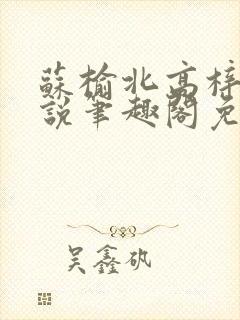 蘇榆北高梓
說筆趣閣免
吴鑫矾